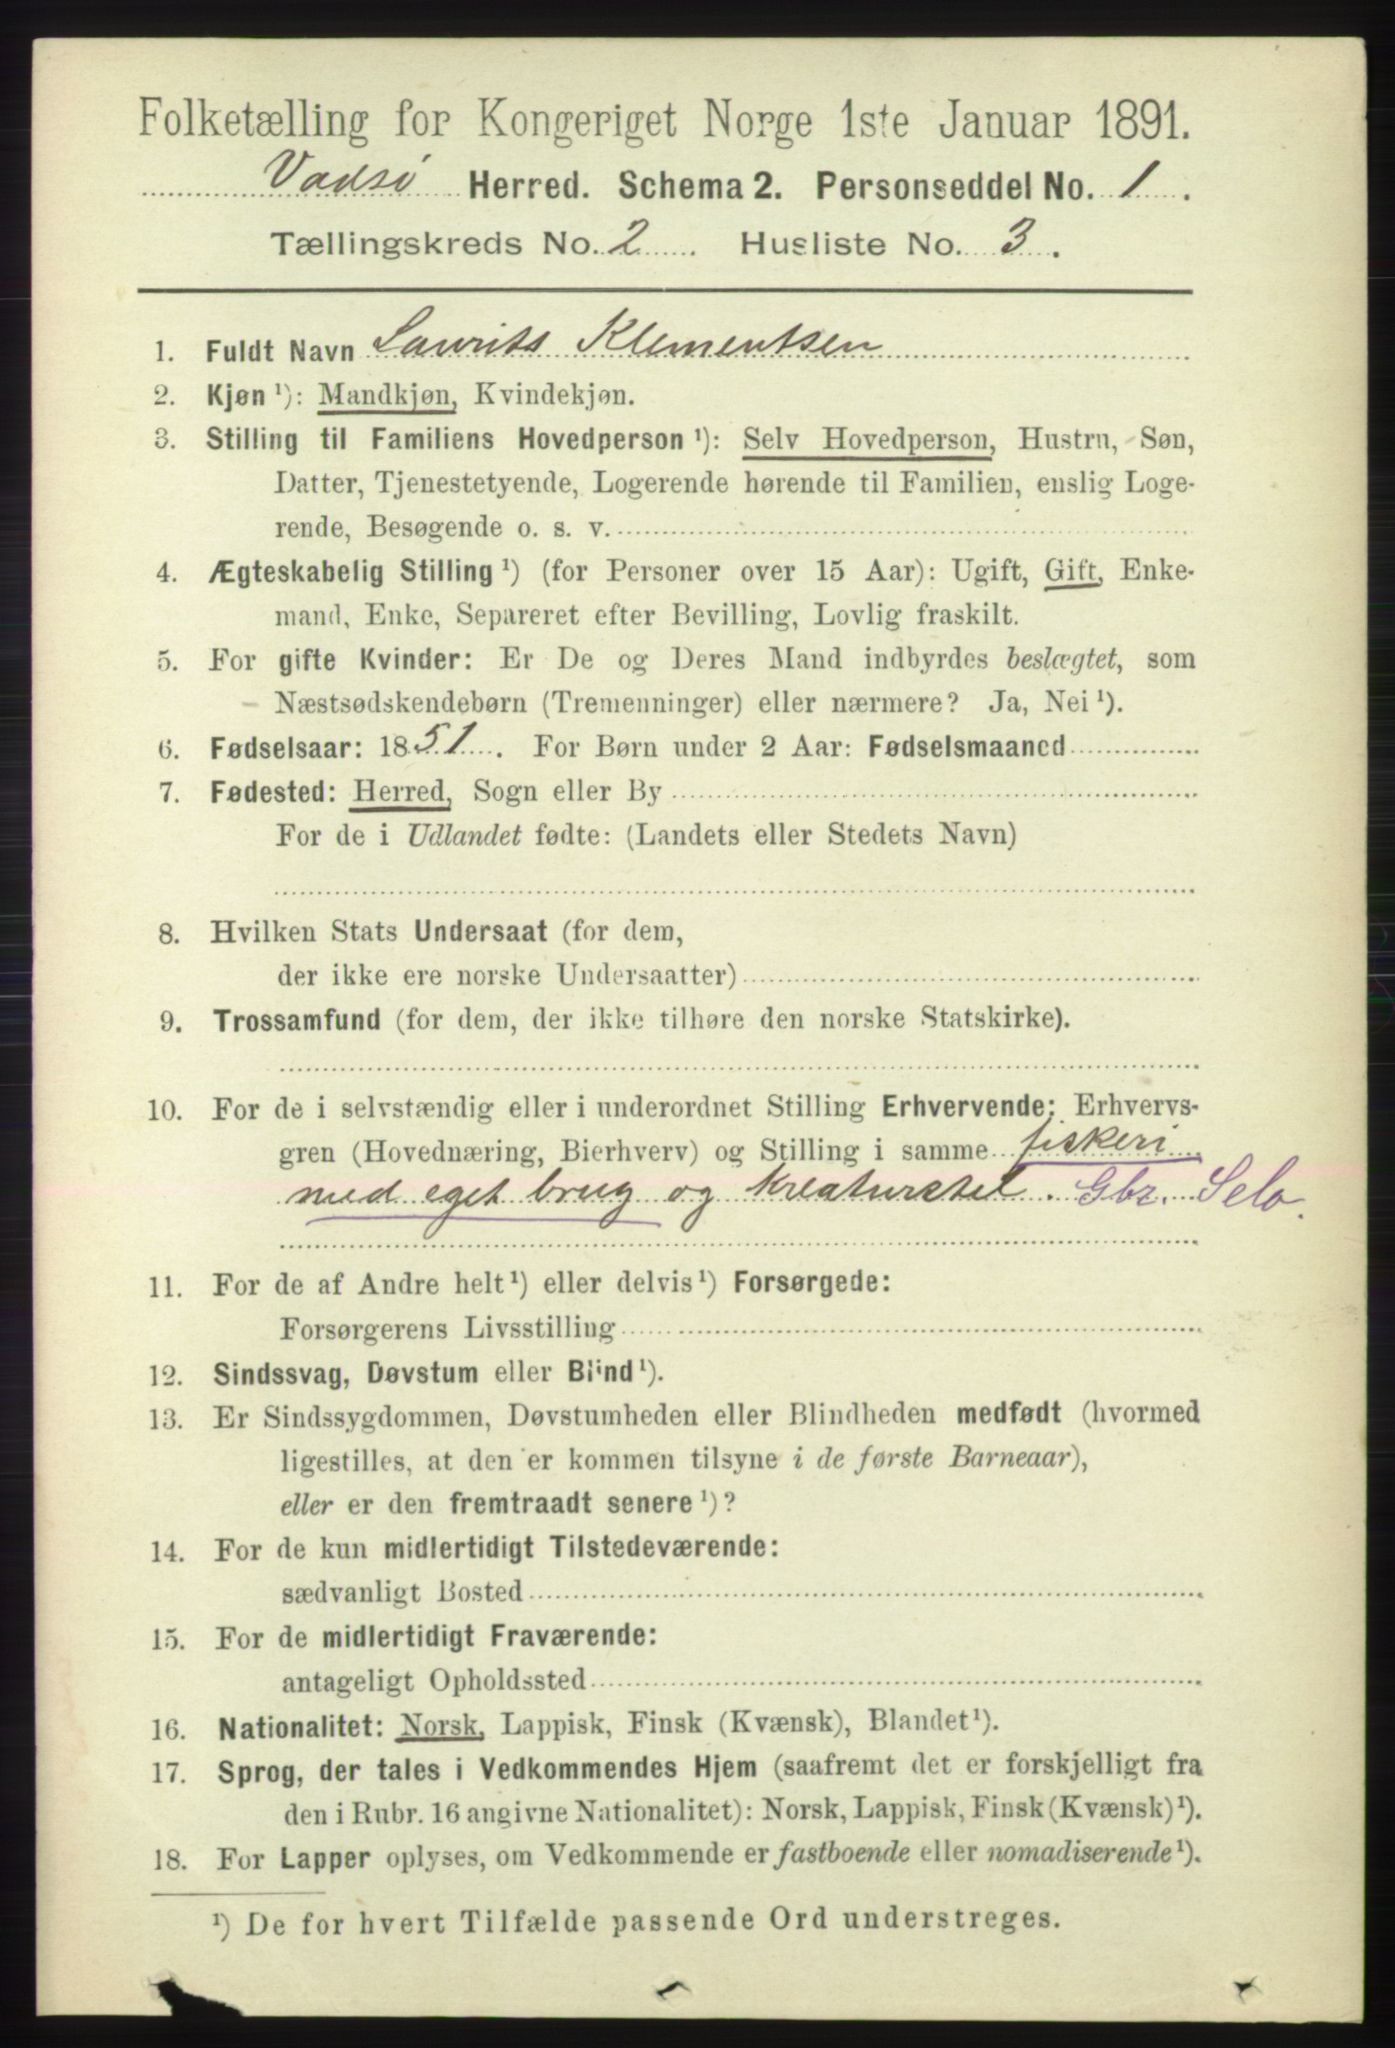 Folketælling for Kongeriget Norge 1ste Januar 1891.
Vadsø Herred. Schema 2. Personseddel No. 1.
Tællingskreds No. 2 Husliste No. 3.
1. Fuldt Navn Laurits Klementsen
2. Kjøn ¹): Mandkjøn, Kvindekjøn.
3. Stilling til Familiens Hovedperson ¹): Selv Hovedperson, Hustru, Søn,
Datter, Tjenestetyende, Logerende hørende til Familien, enslig Loge-
rende, Besøgende o. s. v.
4. Ægteskabelig Stilling ¹) (for Personer over 15 Aar): Ugift, Gift, Enke-
mand, Enke, Separeret efter Bevilling, Lovlig fraskilt.
5. For gifte Kvinder: Er De og Deres Mand indbyrdes beslægtet, som
Næstsødskendebørn (Tremenninger) eller nærmere? Ja, Nei ¹).
6. Fødselsaar: 1851. For Børn under 2 Aar: Fødselsmaaned
7. Fødested: Herred, Sogn eller By
For de i Udlandet fødte: (Landets eller Stedets Navn)
8. Hvilken Stats Undersaat (for dem,
der ikke ere norske Undersaatter)
9. Trossamfund (for dem, der ikke tilhøre den norske Statskirke).
10. For de i selvstændig eller i underordnet Stilling Erhvervende: Erhvervs-
gren (Hovednæring, Bierhverv) og Stilling i samme fiskeri
med eget brug og kreaturstel. Gbr. Selv.
11. For de af Andre helt ¹) eller delvis ¹) Forsørgede:
Forsørgerens Livsstilling
12. Sindssvag, Døvstum eller Blind ¹).
13. Er Sindssygdommen, Døvstumheden eller Blindheden medfødt (hvormed
ligestilles, at den er kommen tilsyne i de første Barneaar),
eller er den fremtraadt senere ¹)?
14. For de kun midlertidigt Tilstedeværende:
sædvanligt Bosted
15. For de midlertidigt Fraværende:
antageligt Opholdssted
16. Nationalitet: Norsk, Lappisk, Finsk (Kvænsk), Blandet ¹).
17. Sprog, der tales i Vedkommendes Hjem (saafremt det er forskjelligt fra
den i Rubr. 16 angivne Nationalitet): Norsk, Lappisk, Finsk (Kvænsk) ¹).
18. For Lapper oplyses, om Vedkommende er fastboende eller nomadiserende ¹).
¹) De for hvert Tilfælde passende Ord understreges.